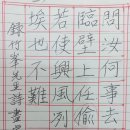 問汝何事去
臨壁上任偷
若使興風冽
挨也不難
錄竹峯先生詩畫